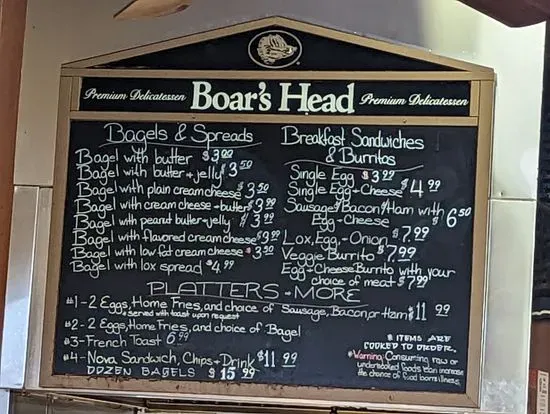 Premium Delicatessen Boar's Head Premium Delicatessen
Bagels & Spreads
Bagel with butter $3.00
Bagel with butter + jelly $3.50
Bagel with plain cream cheese $3.50
Bagel with cream cheese + butter $3.99
Bagel with peanut butter + jelly $3.99
Bagel with flavored cream cheese $3.99
Bagel with low fat cream cheese $3.50
Bagel with lox spread $4.99
Breakfast Sandwiches
& Burritos
Single Egg $3.99
Single Egg + Cheese $4.99
Sausage/Bacon/Ham with
Egg + Cheese $6.50
Lox, Egg, + Onion $7.99
Veggie Burrito $7.99
Egg + Cheese Burrito with your
choice of meat $7.99
PLATTERS + MORE
#1 - 2 Eggs, Home Fries, and choice of Sausage, Bacon, or Ham $11.99
* served with toast upon request
#2 - 2 Eggs, Home Fries, and choice of Bagel
#3 - French Toast 6.99
#4 - Nova Sandwich, Chips + Drink $11.99
DOZEN BAGELS $15.99
ITEMS ARE
COOKED TO ORDER.
*Warning: Consuming raw or
undercooked foods can increase
the chance of food borne illness.